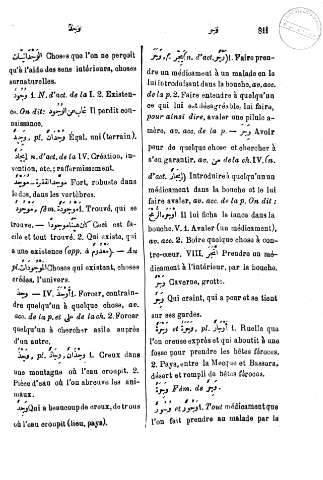 وجد
وجر
811
اَلْوِجْدَانِيَّات Choses que l'on ne perçoit
qu'à l'aide des sens intérieurs, choses
surnaturelles.
وُجُود 1. N. d'act. de la I. 2. Existen-
ce. On dit: غَابَ عَنِ الْوُجُود Il perdit con-
naissance.
وَجِيد, pl. وُجْدَان Égal, uni (terrain).
إِيجَاد n. d'act. de la IV. Création, in-
vention, etc.; raffermissement.
Fort, robuste dans
le dos, dans les vertèbres.
مَوْجُود, fém. مَوْجُودَة 1. Trouvé, qui se
trouve. — Ceci est fa-
cile et tout trouvé. 2. Qui existe, qui
a une existence (opp. à مَعْدُوم). — Au
pl. اَلْمَوْجُودَات Choses qui existent, choses
créées, l'univers.
وجذ — IV. أَوْجَذَ 1. Forcer, contrain-
dre quelqu'un à quelque chose, av.
acc. de la p. et على de la ch. 2. Forcer
quelqu'un à chercher asile auprès
d'un autre.
وَجْذ, pl. وِجْذَان, وِجَاذ 1. Creux dans
une montagne où l'eau croupit. 2.
Pièce d'eau où l'on abreuve les ani-
maux.
وَجِذ Qui a beaucoup de creux, de trous
où l'eau croupit (lieu, pays).
وَجَرَ f. يَجِرُ (n. d'act. وَجْر) 1. Faire pren-
dre un médicament à un malade en le
lui introduisant dans la bouche, av. acc.
de la p. 2. Faire entendre à quelqu'un
ce qui lui est désagréable, lui faire,
pour ainsi dire, avaler une pilule a-
mère, av. acc. de la p. — وَجِرَ Avoir
peur de quelque chose et chercher à
s'en garantir, av. من de la ch. IV. (n.
d'act. إِيجَار) Introduire à quelqu'un un
médicament dans la bouche et le lui
faire avaler, av. acc. de la p. On dit:
أَوْجَرَهُ الرُّمْحَ Il lui ficha la lance dans la
bouche. V. 1. Avaler (un médicament),
av. acc. 2. Boire quelque chose à con-
tre-cœur. VIII. إِتَّجَرَ Prendre un mé-
dicament à l'intérieur, par la bouche.
وَجْر Caverne, grotte.
وَجِر Qui craint, qui a peur et se tient
sur ses gardes.
1. Ruelle que
l'on creuse exprès et qui aboutit à une
fosse pour prendre les bêtes féroces.
2. Pays, entre la Mecque et Bassora,
désert et rempli de bêtes féroces.
وَجِرَة Fém. de وَجِر.
وَجُور et وُجُور Tout médicament que
l'on fait prendre au malade par la